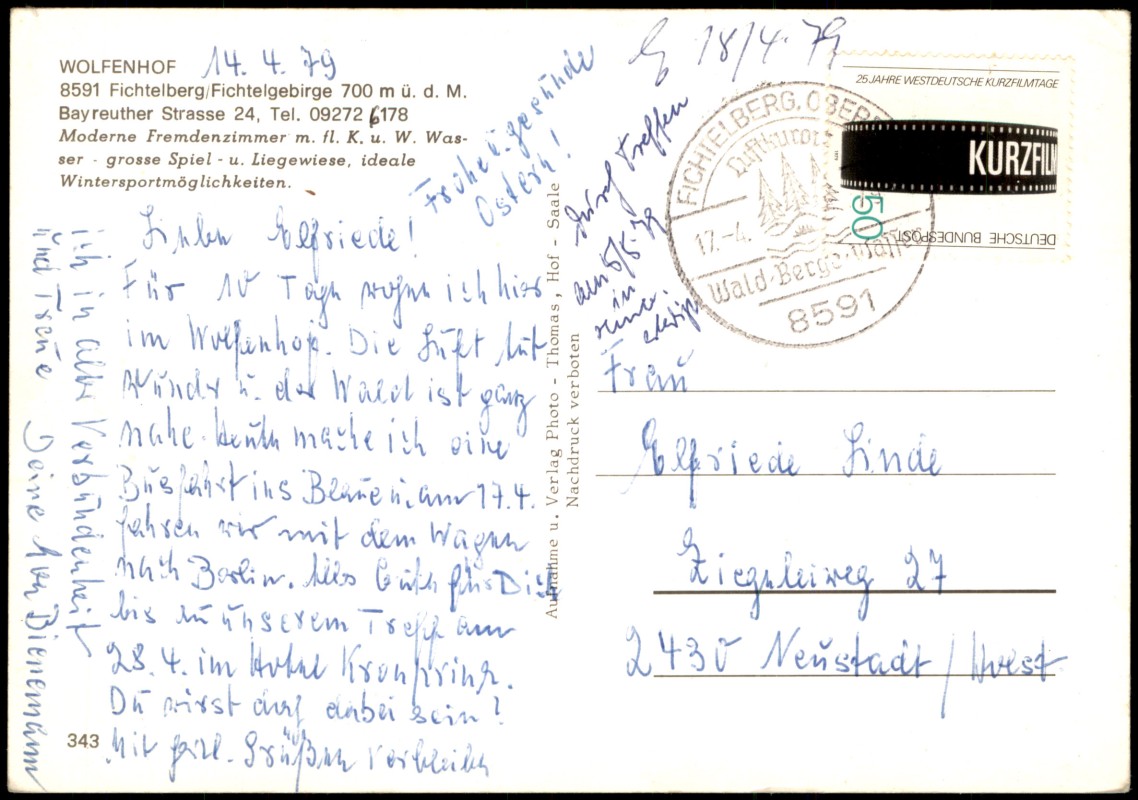 WOLFENHOF
14. 4. 79
8591 Fichtelberg/Fichtelgebirge 700 m ü. d. M.
Bayreuther Strasse 24, Tel. 09272 6178
Moderne Fremdenzimmer m. fl. K. u. W. Was-
ser - grosse Spiel - u. Liegewiese, ideale
Wintersportmöglichkeiten.
Frohe u. gesunde
Ostern!
Lieben Elfriede!
Für 10 Tage wohne ich hier
im Wolfenhof. Die Luft tut
Wunder u. der Wald ist ganz
nahe. Heute mache ich eine
Busfahrt ins Blaue u. am 17.4.
fahren wir mit dem Wagen
nach Berlin. Alles Gute für Dich
bis zu unserem Treff am
28. 4. im Hotel Kronprinz.
Du wirst doch dabei sein?
Mit herzl. Grüßen verbleibe
ich in alter Verbundenheit
und Treue Deine
Bienemann
343
Aufnahme u. Verlag Photo - Thomas, Hof - Saale
Nachdruck verboten
18/4. 79
Treffen
am 5/5. 79
in
25 JAHRE WESTDEUTSCHE KURZFILMTAGE
KURZFILM
50
DEUTSCHE BUNDESPOST
FICHTELBERG, OBERF
Luftkurort
17.-4.
Wald-Berge-
8591
Frau
Elfriede Linde
Ziegeleiweg 27
2430 Neustadt / Holst